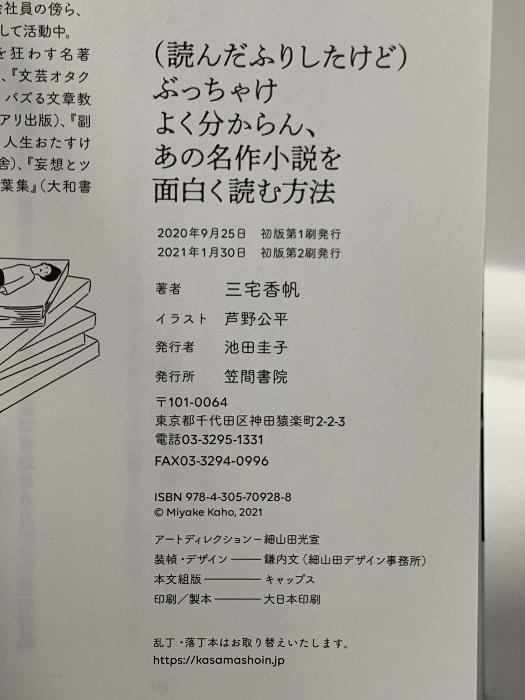 会社員の傍ら、
して活動中。
を狂わす名著
、『文芸オタク
バズる文章教
アリ出版)、『副
人生おたすけ
舎)、『妄想とツ
葉集』(大和書
(読んだふりしたけど)
ぶっちゃけ
よく分からん、
あの名作小説を
面白く読む方法
2020年9月25日 初版第1刷発行
2021年1月30日 初版第2刷発行
著者 三宅香帆
イラスト 芦野公平
発行者 池田圭子
発行所 笠間書院
〒101-0064
東京都千代田区神田猿楽町2-2-3
電話03-3295-1331
FAX03-3294-0996
ISBN 978-4-305-70928-8
© Miyake Kaho, 2021
アートディレクション — 細山田光宣
装幀・デザイン — 鎌内文(細山田デザイン事務所)
本文組版 — キャップス
印刷/製本 — 大日本印刷
乱丁・落丁本はお取り替えいたします。
https://kasamashoin.jp